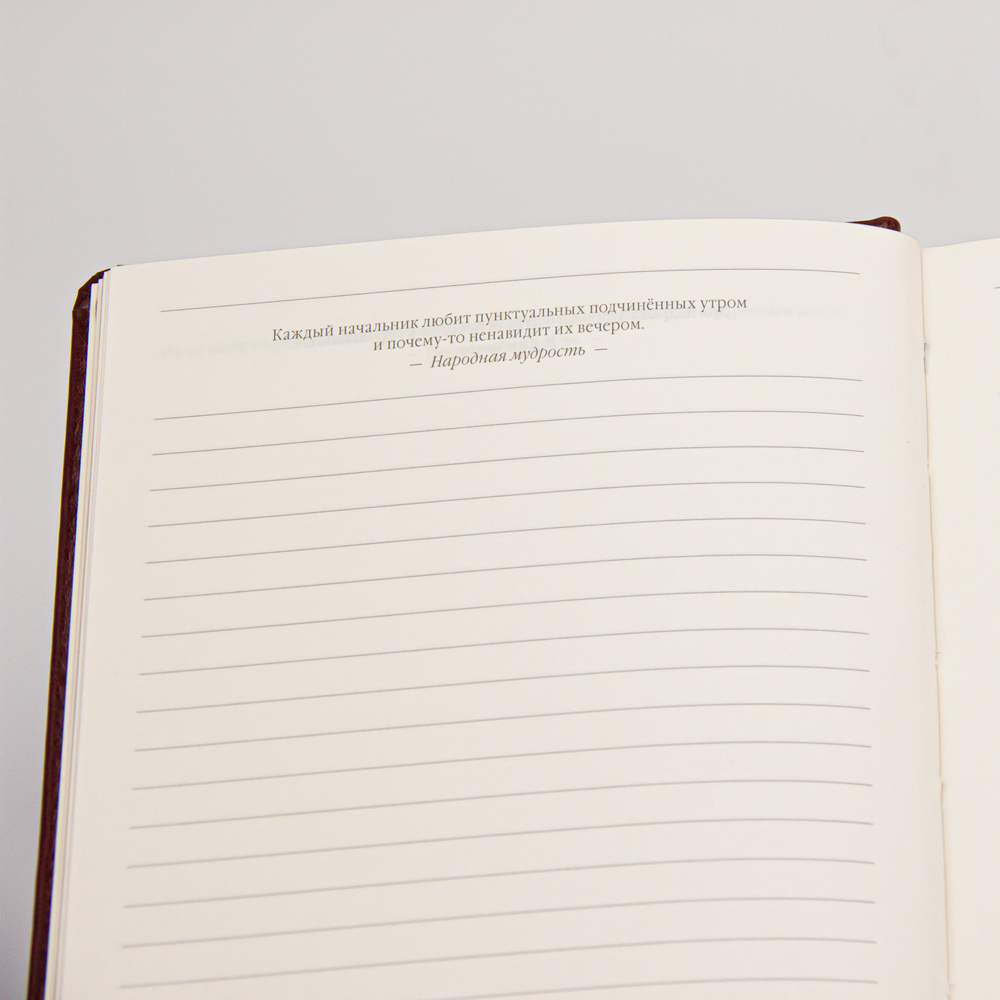 Каждый начальник любит пунктуальных подчинённых утром
и почему-то ненавидит их вечером.
— Народная мудрость —